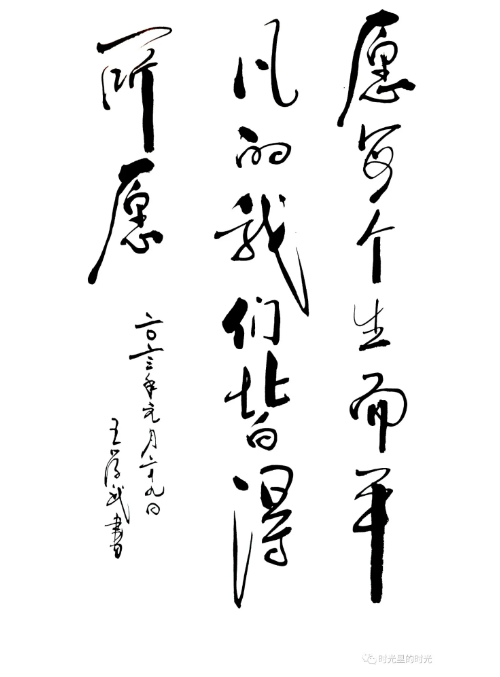 愿每个生而平
凡的我们皆得
所愿
二〇二三年元月二十九日
王学武書
时光里的时光